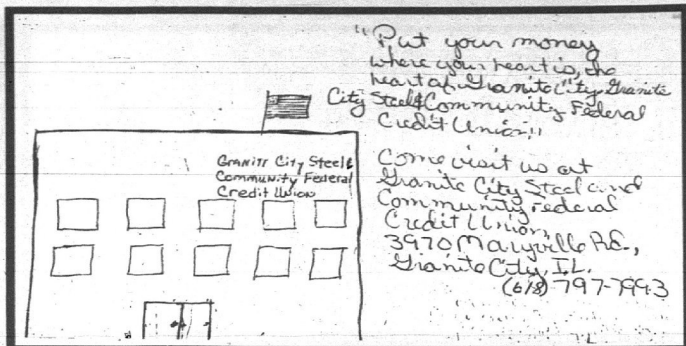 "Put your money
where your heart is, the
heart of Granite City, Granite
City Steel & Community Federal
Credit Union."
Granite City Steel &
Community Federal
Credit Union
Come visit us at
Granite City Steel and
Community Federal
Credit Union,
3970 Maryville Rd.,
Granite City, IL.
(618) 797-7993